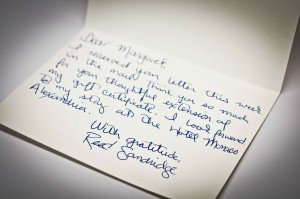 Dear Margaret,
I received your letter this week
in the mail. Thank you so much
for your thoughtful extension of
my gift certificate. I look forward
to my stay at the Hotel Monaco
Alexandria.
With gratitude,
Reed Sandridge